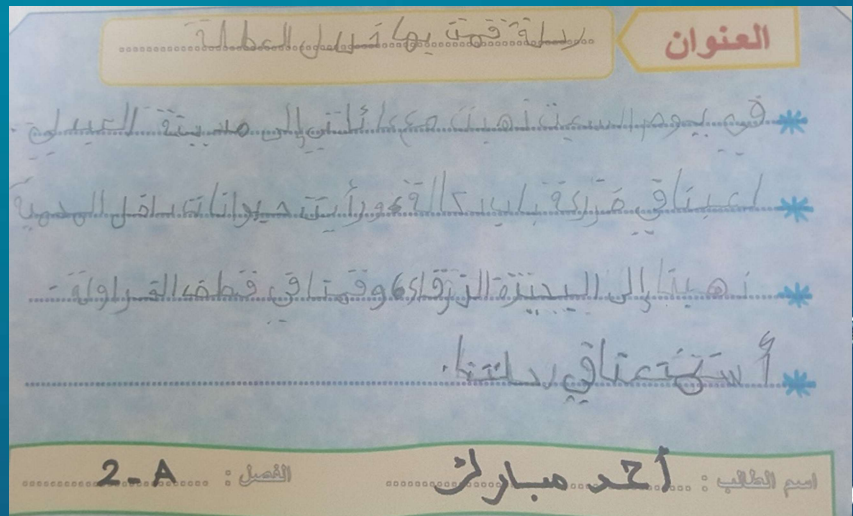 العنوان رحلة قمت بها خلال العطلة
في يوم السبت ذهبت مع عائلتي إلى مدينة العين
لعبنا في مزرعة بلب و رأيت حيوانات داخل المحمية
ذهبنا إلى البحيرة الزرقاء وقمنا في قطف الفراولة
أستمتعنا في رحلتنا.
اسم الطالب : أحمد مبارك الفصل : 2-A